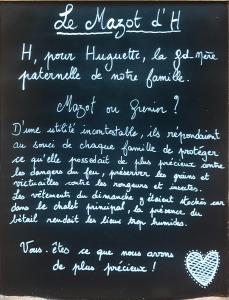 Le Mazot d'H
H, pour Huguette, la gd mère
paternelle de notre famille.
Mazot ou Grenier ?
D'une utilité incontestable, ils répondaient
au souci de chaque famille de protéger
ce qu'elle possédait de plus précieux contre
les dangers du feu, préserver les grains et
victuailles contre les rongeurs et insectes.
Les vêtements du dimanche y étaient stockés car
dans le chalet principal, la présence du
bétail rendait les lieux trop humides.
Vous êtes ce que nous avons
de plus précieux !